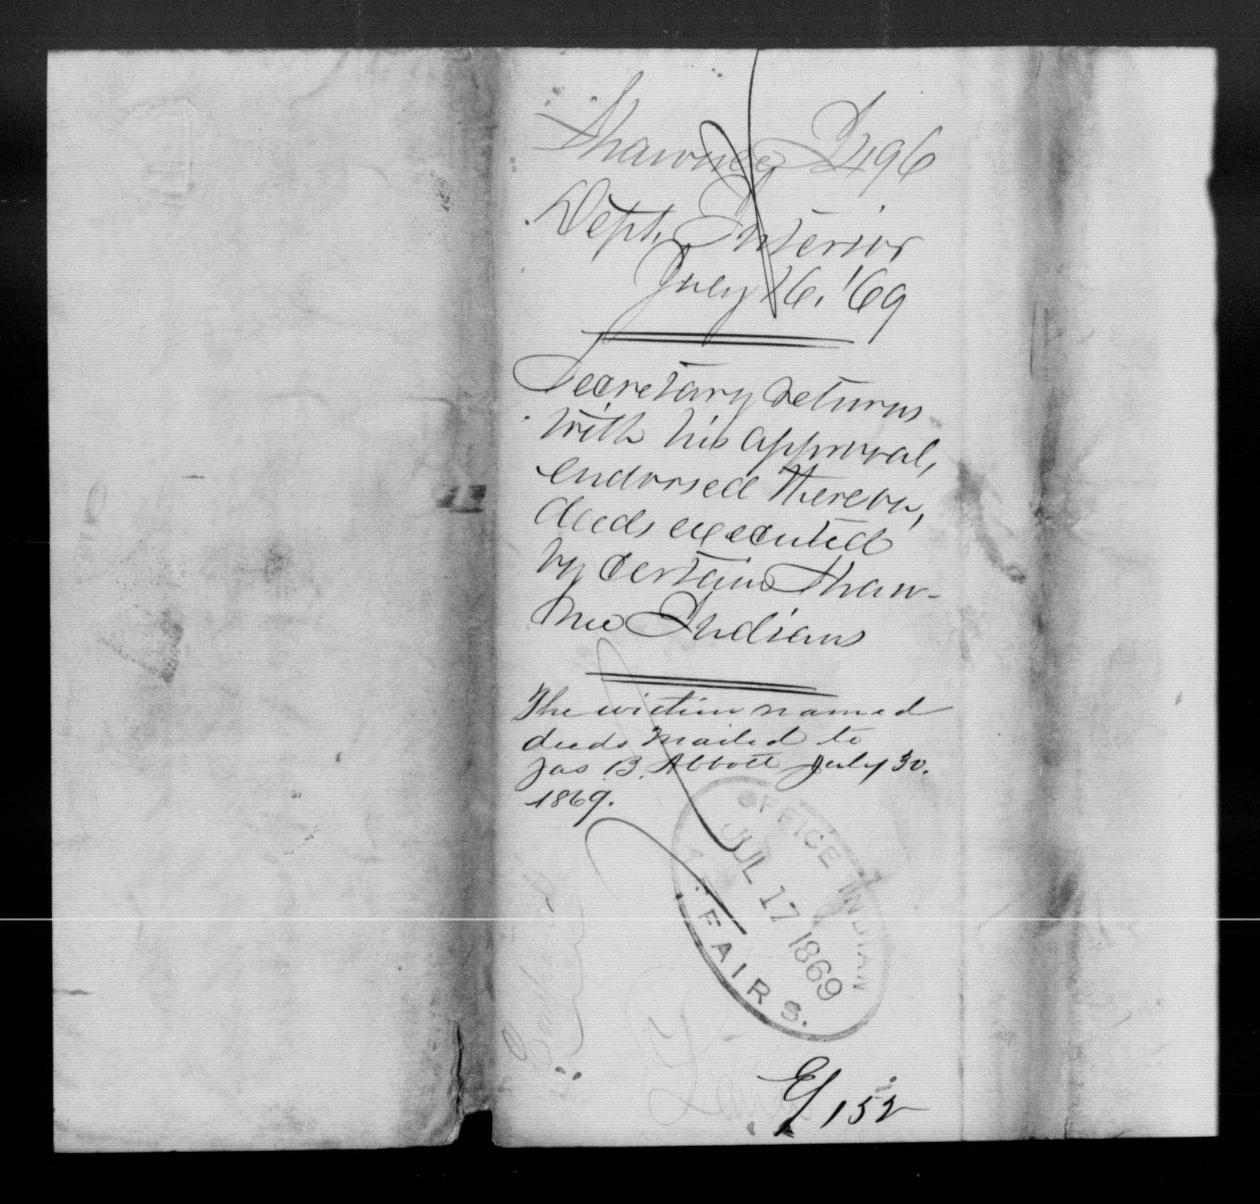 Shawnee I496
Dept. Interior
July 16, '69
Secretary returns
with his approval,
endorsed thereon,
deeds executed
by certain Shaw-
nee Indians
The within named
deeds mailed to
Jas. B. Abbott July 30.
1869.
OFFICE INDIAN
JUL 17 1869
AFFAIRS.
152